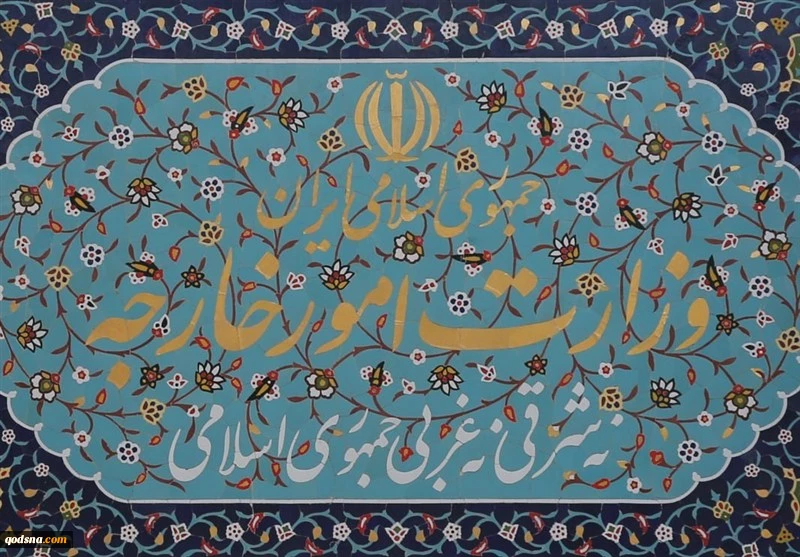 جمهوری اسلامی ایران
وزارت امور خارجه
نه شرقی نه غربی جمهوری اسلامی
qodsna.com